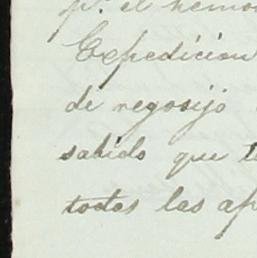 pr. el hemos
Expedicion
de regosijo
sabido que
todas las ap